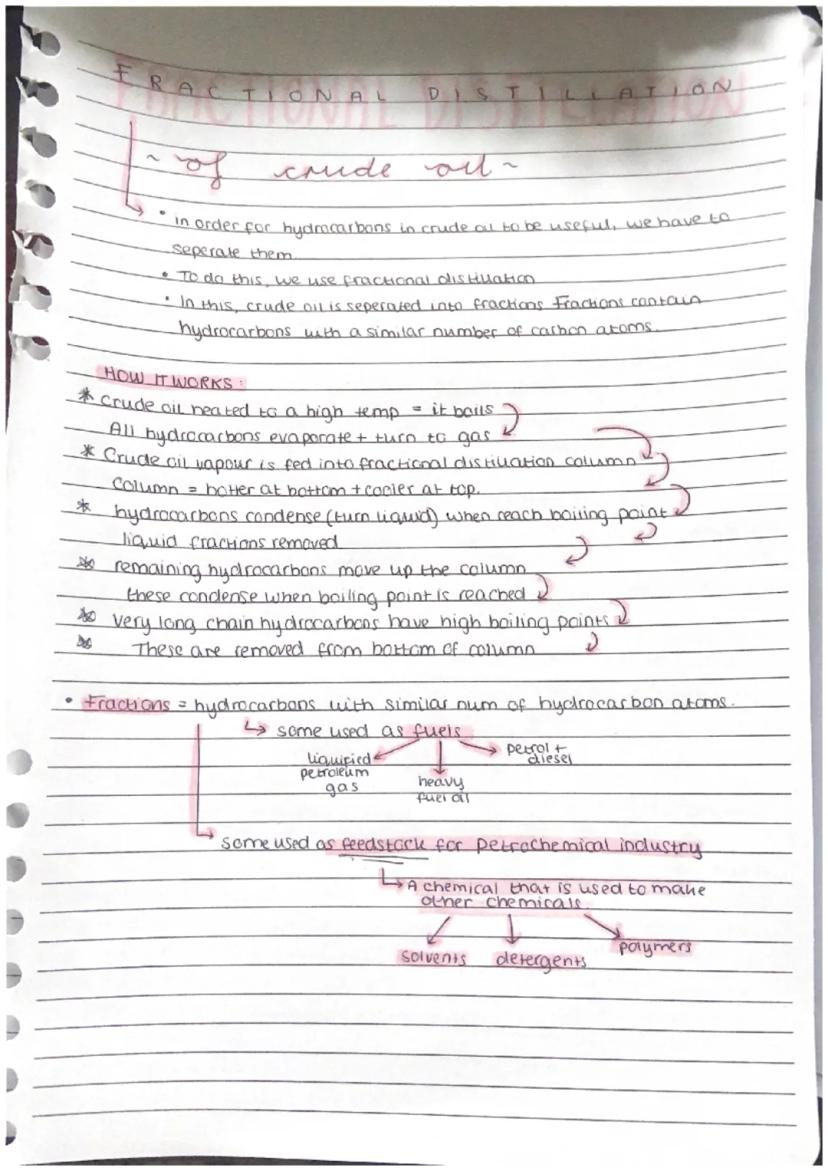 FRACTIONAL DISTILLATION
~ of crude oil ~
• in order for hydrocarbons in crude oil to be useful, we have to
seperate them.
• To do this, we use fractional distillation
• In this, crude oil is seperated into fractions Fractions contain
hydrocarbons with a similar number of carbon atoms.
HOW IT WORKS:
* Crude oil heated to a high temp = it boils
All hydrocarbons evaporate + turn to gas
* Crude oil vapour is fed into fractional distillation column
Column = hotter at bottom + cooler at top.
* hydrocarbons condense (turn liquid) when reach boiling point
liquid fractions removed
* remaining hydrocarbons move up the column
these condense when boiling point is reached
* Very long chain hydrocarbons have high boiling points
* These are removed from bottom of column
• Fractions = hydrocarbons with similar num of hydrocarbon atoms.
↳ some used as fuels
liquified
petroleum
gas
heavy
fuel oil
petrol +
diesel
some used as feedstock for petrochemical industry
↳ A chemical that is used to make
other chemicals.
solvents detergents polymers